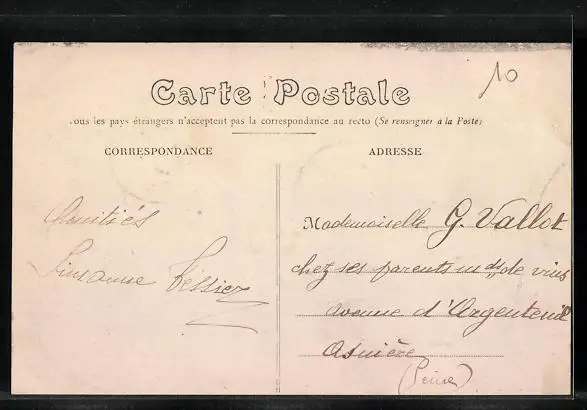 10
Carte Postale
ous les pays étrangers n'acceptent pas la correspondance au recto (Se renseigner à la Poste)
CORRESPONDANCE
ADRESSE
Amitiés
Simonne Tessier
Mademoiselle G. Vallot
chez ses parents m ds de vins
avenue d'Argenteuil
Asnière
(Seine)